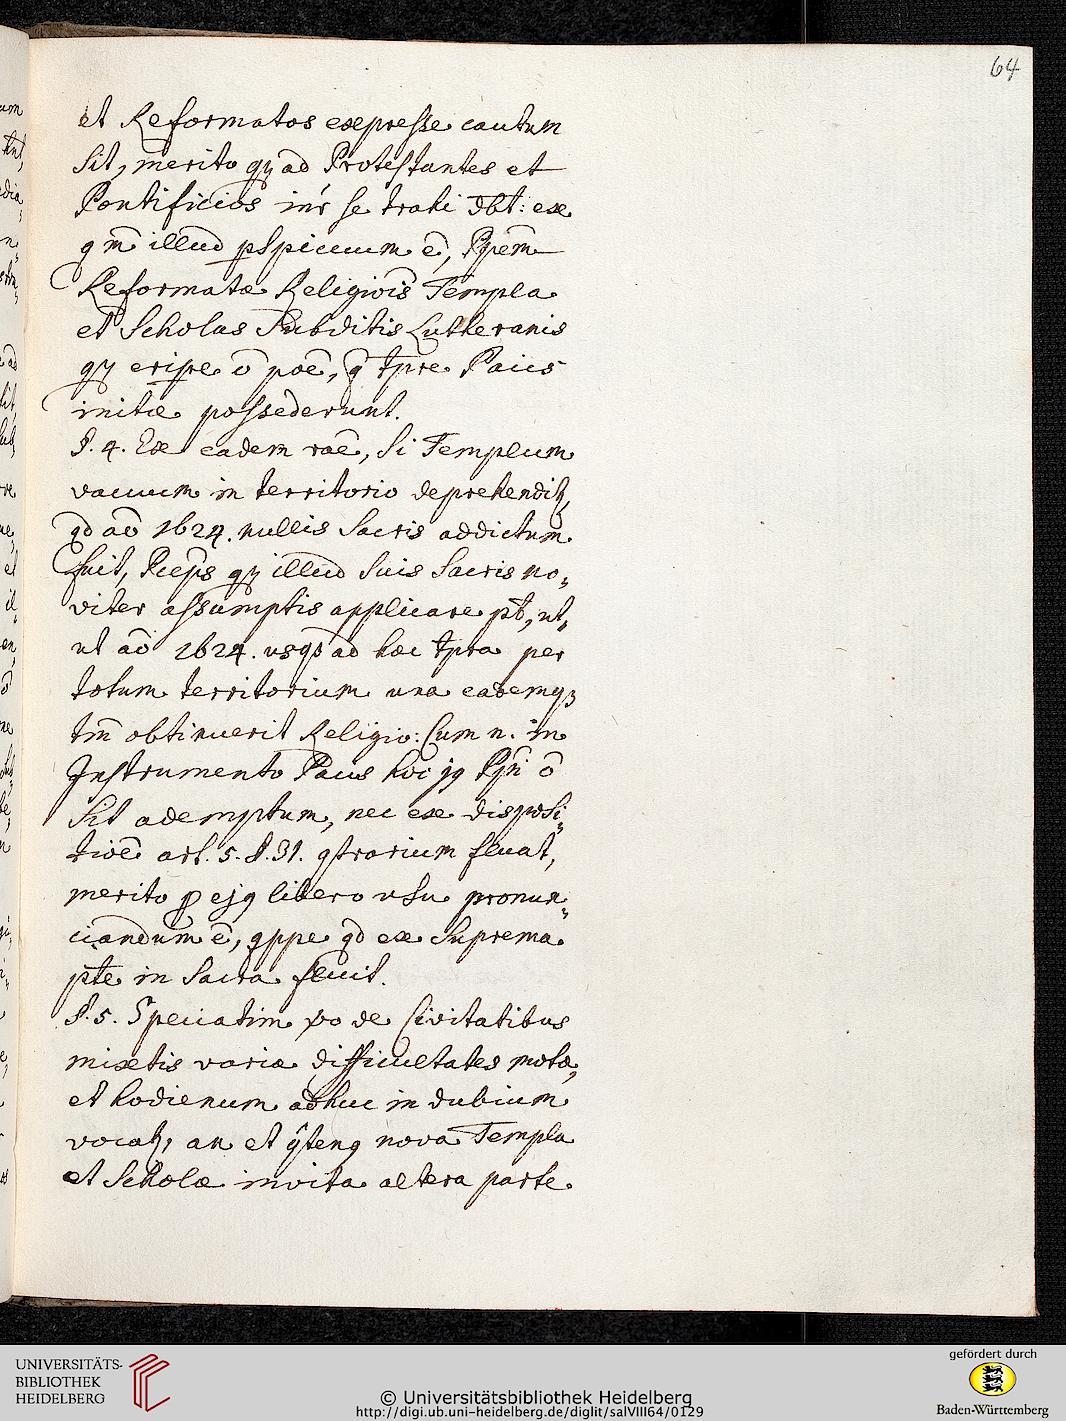 64
et Reformatos expresse cautum
sit, merito qq ad Protestantes et
Pontificios int'r se trahi dbt: ex
q m̄ illud pspicuum ē, Ppem̄
Reformatæ Religiois̄ Templa
et Scholas Subditis Lutheranis
qq eripe ō poē, q̄ tpre Pacis
initæ possederunt.
§. 4. Ex eadem raē, si Templum
vacuum in territorio deprehendit,
qd aō 1624. nullis Sacris addictum
fuit, Pceps qq illud suis Sacris no„
viter assumptis applicare pt, ut„
ut aō 1624. usqs ad hæc tpra per
totum territorium una eademq3
tm̄ obtinuerit Religio: Cum n. in
Instrumento Pacis hoc jg Ppi ō
sit ademptum, nec ex disposi„
tioē art. 5. §. 31. gtrarium fluat,
merito p ejg libero usu pronun„
ciandum ē, qppe qd ex Suprema
pte in Sacra fluit.
§. 5. Speciatim vo de Civitatibus
mixtis variæ difficultates motæ,
et hodienum adhuc in dubium
vocat, an et qteng nova Templa
et Scholæ invita altera parte
UNIVERSITÄTS-
BIBLIOTHEK
HEIDELBERG
© Universitätsbibliothek Heidelberg
http://digi.ub.uni-heidelberg.de/diglit/salVIII64/0129
gefördert durch
Baden-Württemberg